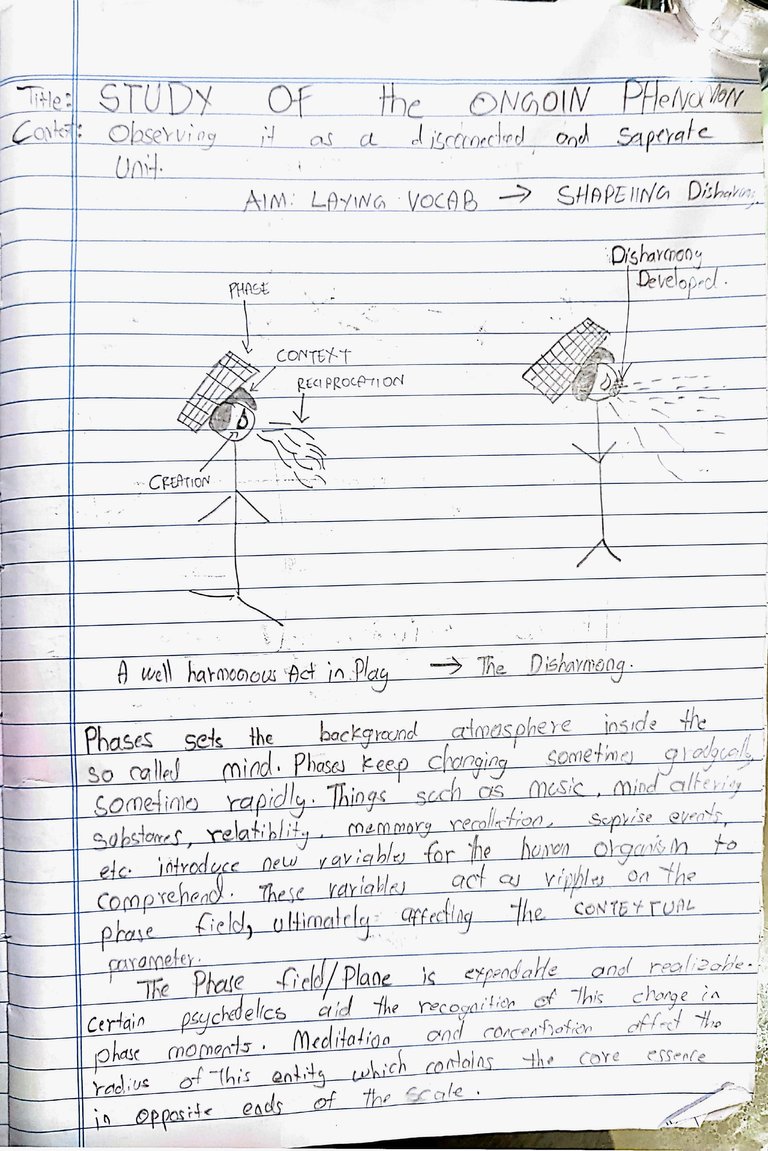 Title: STUDY OF the ONGOIN PHeNOMON
Context: Observing it as a disconnected and saperate
Unit.
AIM: LAYING VOCAB → SHAPEIING Disharmony
Disharmony
Developed.
PHASE
CONTEXT
RECIPROCATION
CREATION
A well harmonous Act in Play → The Disharmony.
Phases sets the background atmosphere inside the
so called mind. Phases keep changing sometimes gradually
sometimes rapidly. Things such as music, mind altering
substances, relatiblity, memmory recollection, suprise events,
etc. introduce new variables for the human organism to
comprehend. These variables act as ripples on the
phase field, ultimately affecting the CONTEXTUAL
parameter.
The Phase field/Plane is expendable and realizable.
certain psychedelics aid the recognition of this change in
phase moments. Meditation and concentration affect the
radius of this entity which contains the core essence
in opposite ends of the scale.